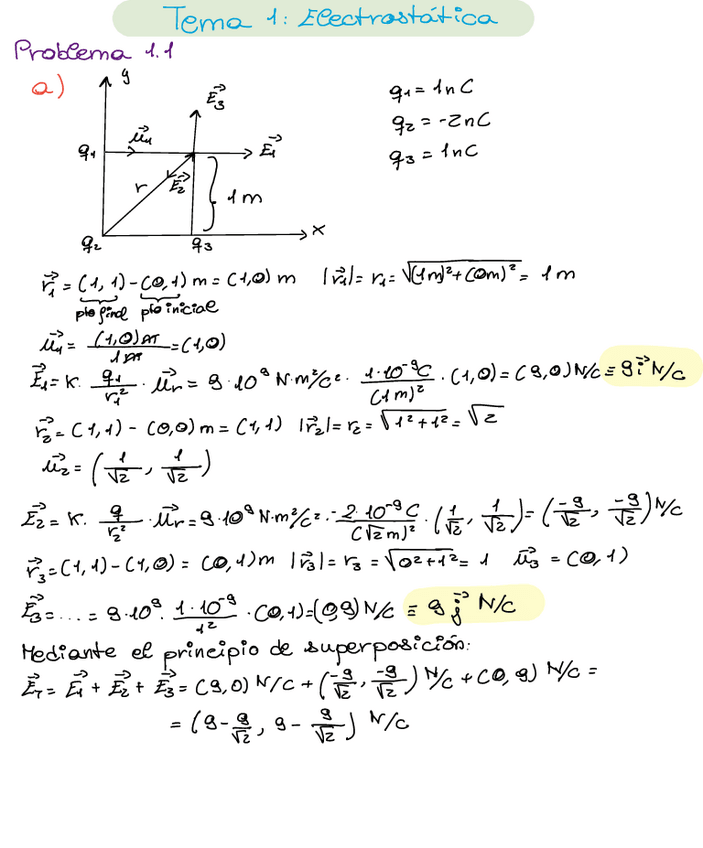 Tema 1: Electrostática
Problema 1.1
a)
y
E⃗₃
q₁ = 1nC
q₁
u⃗₁
E⃗₁
q₂ = -2nC
r
E⃗₂
1m
q₃ = 1nC
q₂
q₃
x
r⃗₁ = (1, 1) - (0, 1) m = (1,0) m |r⃗₁| = r₁ = √((1m)² + (0m)²) = 1m
pto final pto inicial
u⃗₁ = (1,0)m / 1m = (1,0)
E⃗₁ = K · q₁/r₁² · u⃗r = 9·10⁹ N·m²/C² · 1·10⁻⁹C/(1m)² · (1,0) = (9,0) N/C ≡ 9i⃗ N/C
r⃗₂ = (1,1) - (0,0) m = (1,1) |r⃗₂| = r₂ = √(1² + 1²) = √2
u⃗₂ = (1/√2, 1/√2)
E⃗₂ = K · q/r₂² · u⃗r = 9·10⁹ N·m²/C² · -2·10⁻⁹C/(√2m)² · (1/√2, 1/√2) = (-9/√2, -9/√2) N/C
r⃗₃ = (1,1) - (1,0) = (0,1)m |r⃗₃| = r₃ = √(0² + 1²) = 1 u⃗₃ = (0,1)
E⃗₃ = ... = 9·10⁹ · 1·10⁻⁹/1² · (0,1) = (0,9) N/C ≡ 9 j⃗ N/C
Mediante el principio de superposición:
E⃗T = E⃗₁ + E⃗₂ + E⃗₃ = (9,0) N/C + (-9/√2, -9/√2) N/C + (0, 9) N/C =
= (9 - 9/√2, 9 - 9/√2) N/C